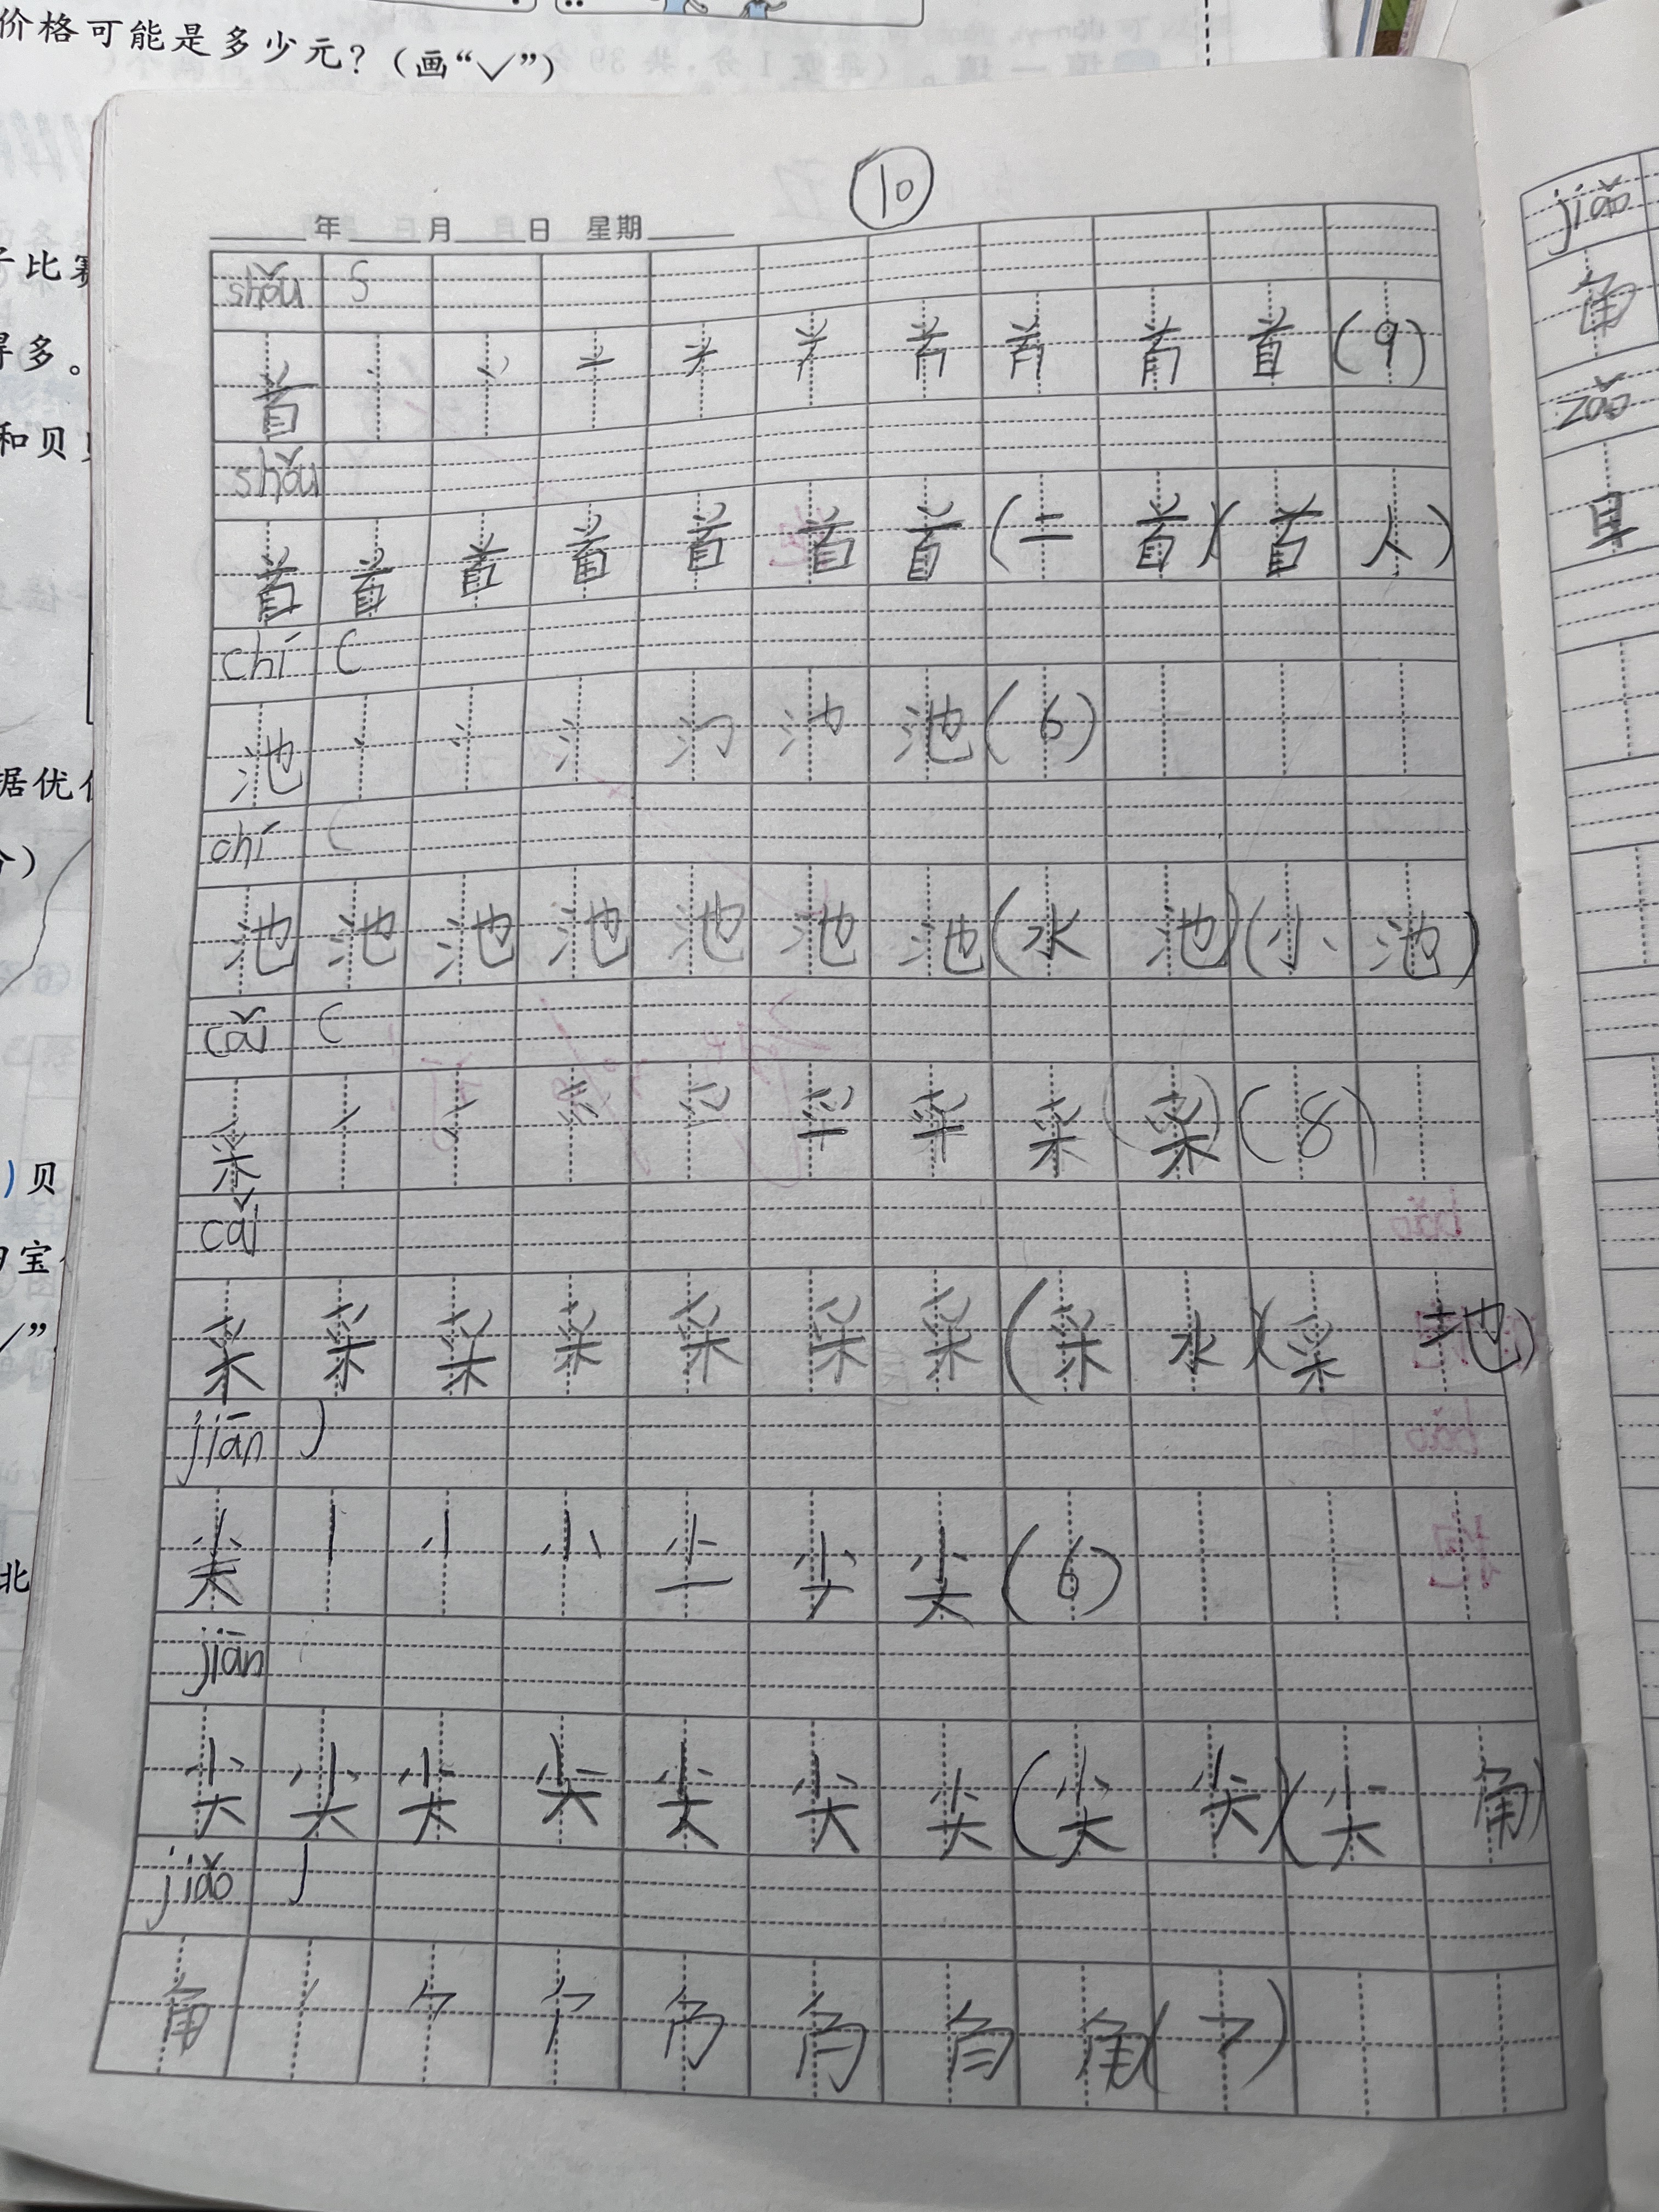 价格可能是多少元？(画“✓”)
⑩
年 月 日 星期
shǒu s
首 (9)
shǒu
首 首 首 首 首 首 首 (二首)(首人)
chí c
池 池 (6)
chí c
池 池 池 池 池 池 池 (水池)(小池)
cǎi c
采 采 (采) (8)
cǎi
采 采 采 采 采 采 采 (采水)(采地)
jiān j
尖 丨 小 尖 (6)
jiān
尖 尖 尖 尖 尖 尖 尖 (尖尖)(尖角)
jiǎo j
角 丿 ⺈ 角 (7)
比赛
得多。
和贝
据优
个)
)贝
宝
✓”
北
jiǎo
角
zǎo